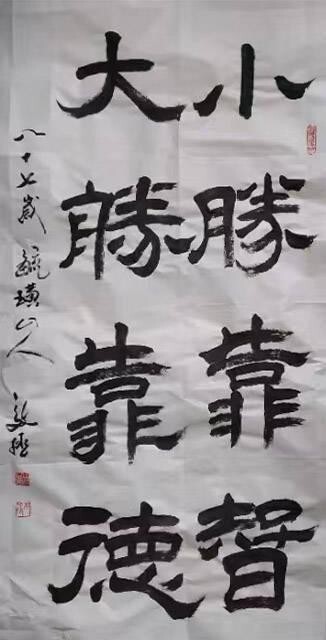 小勝靠智
大勝靠德
八十七歲
山人